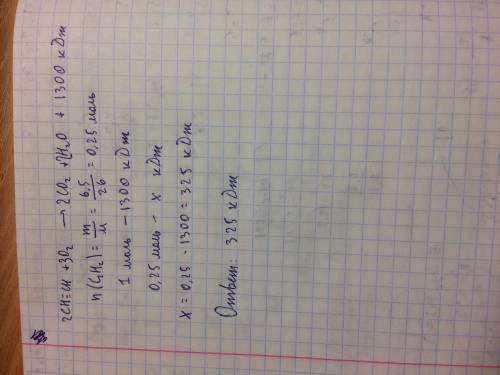 2CH≡CH + 3O₂ → 2CO₂ + 2H₂O + 1300 кДж
n(C₂H₂) = m/M = 6,5/26 = 0,25 моль
1 моль – 1300 кДж
0,25 моль – x кДж
x = 0,25 · 1300 = 325 кДж
Ответ: 325 кДж